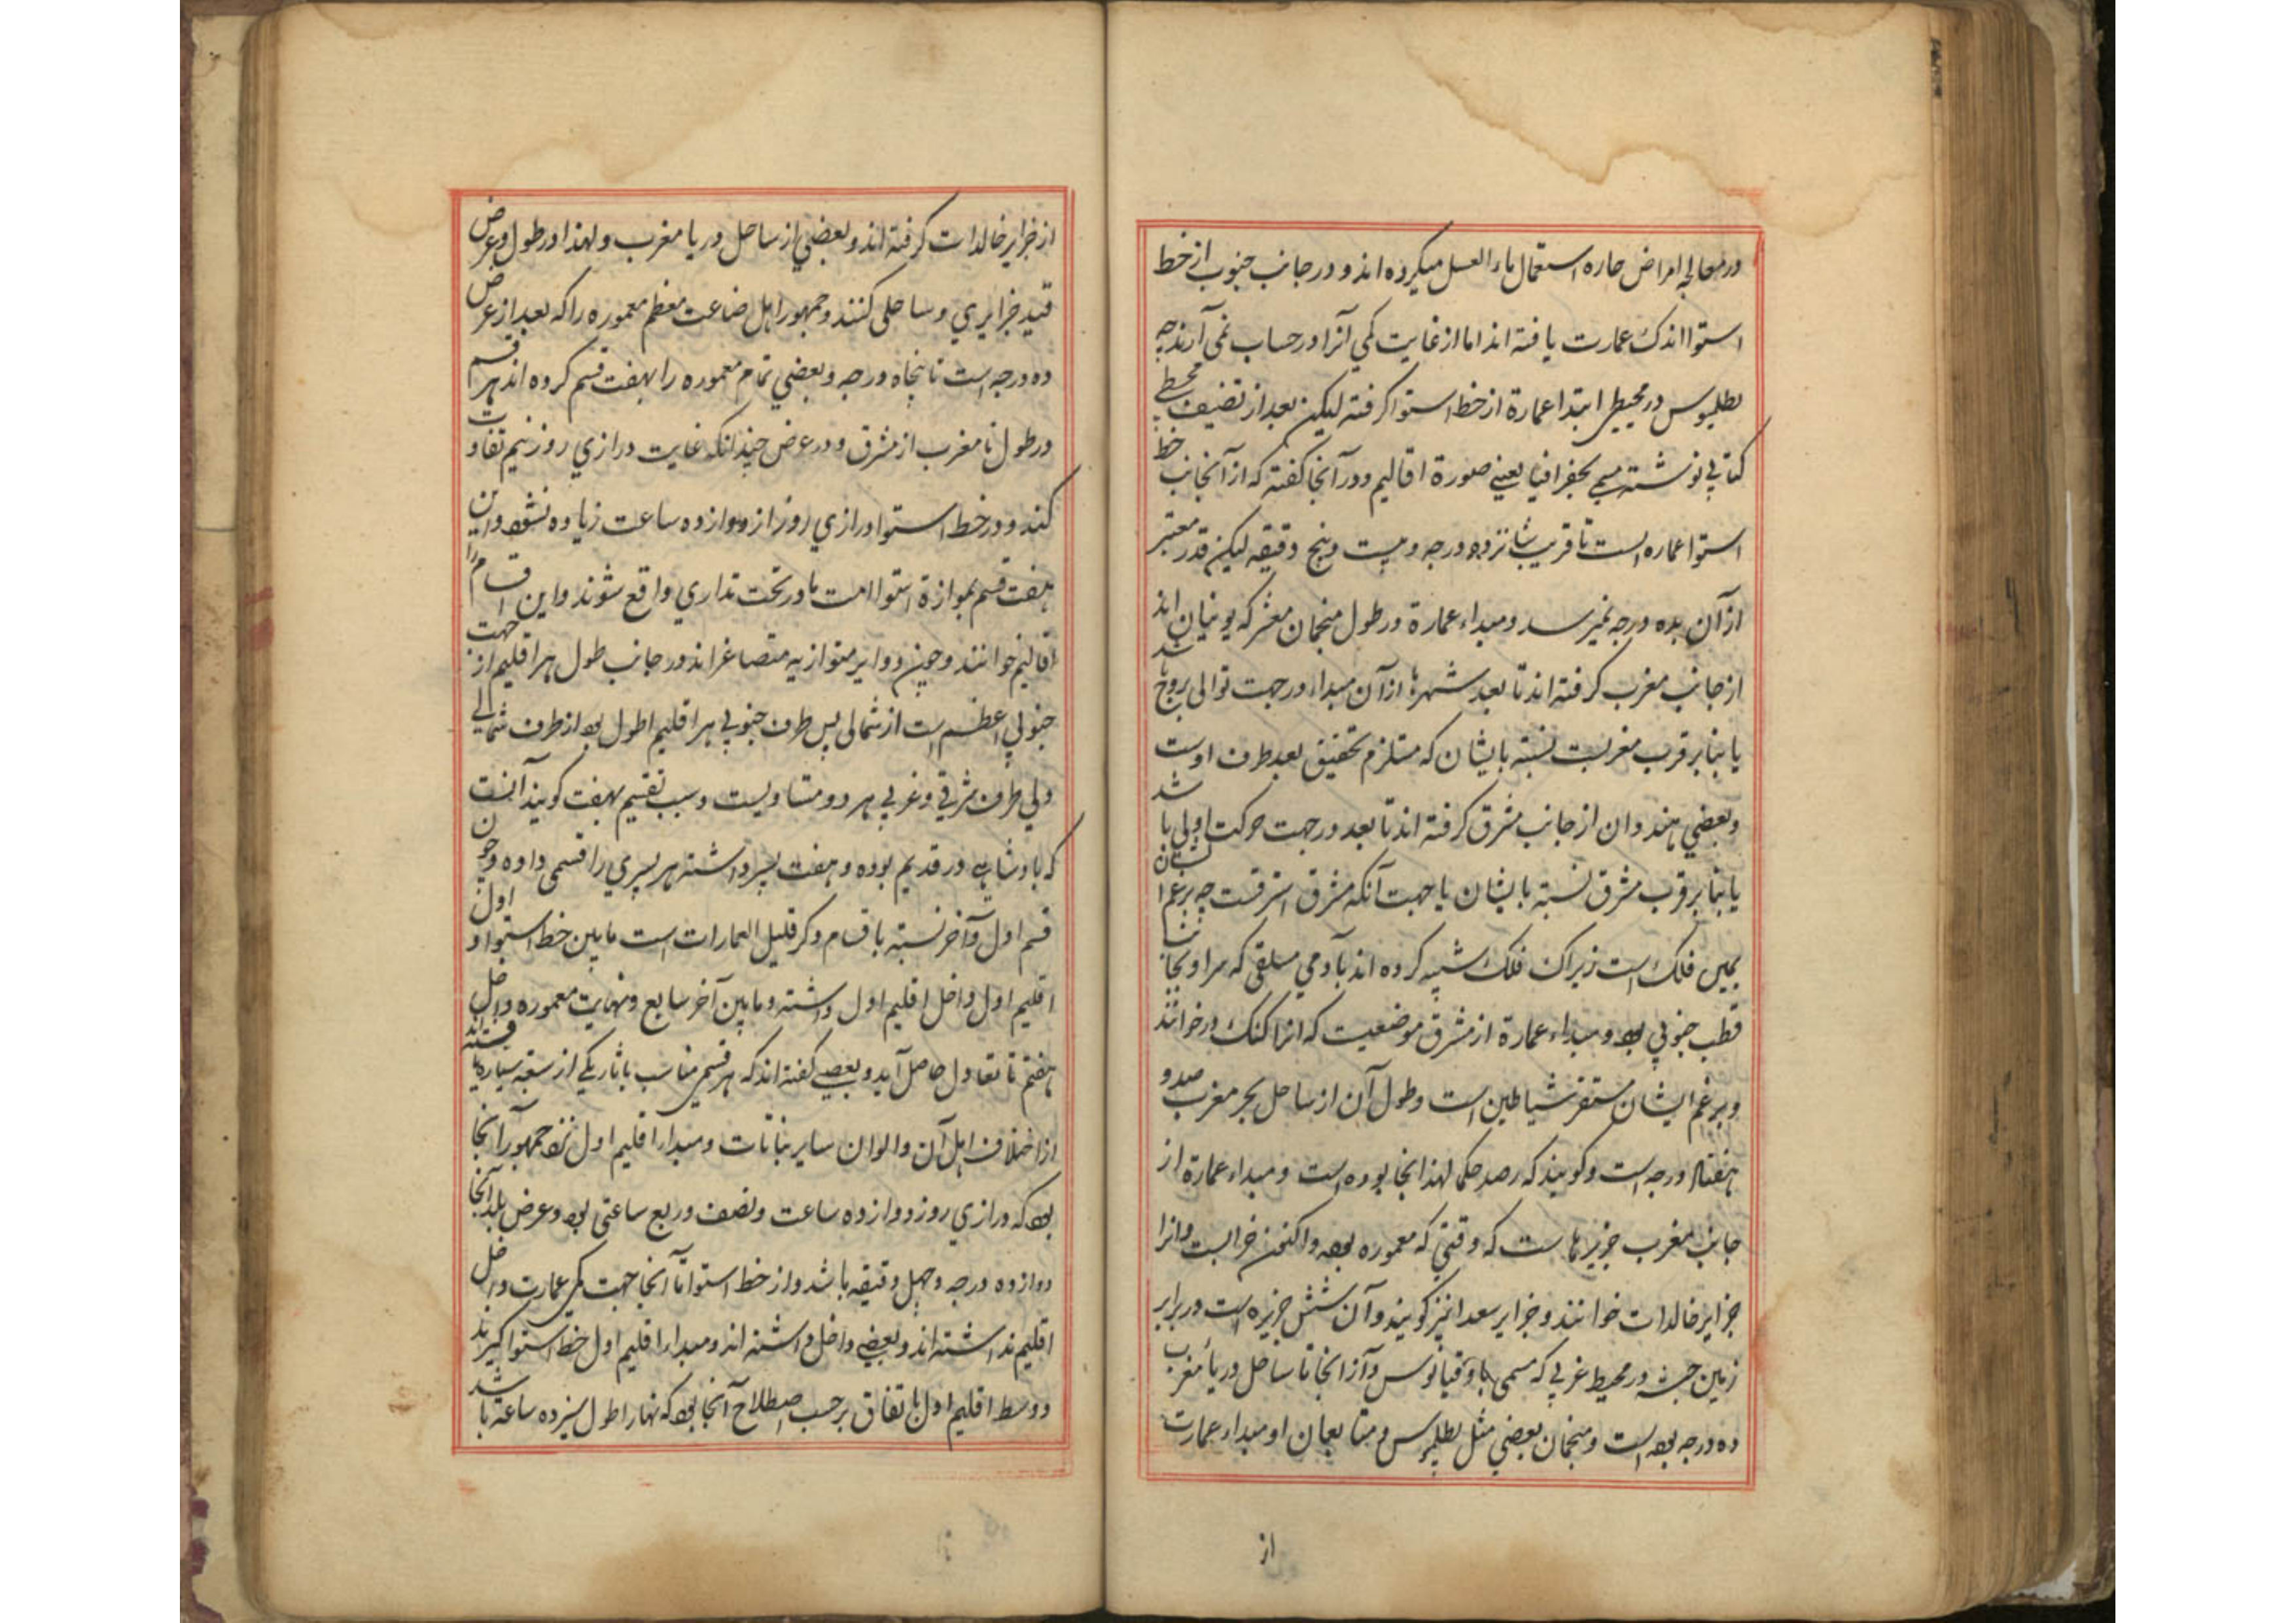 در معالجه امراض حاره استعمال ماء العسل میکرده اند و در جانب جنوب از خط
استوا اندک عمارت یافته اند اما از غایت کمی آنرا در حساب نمی آرند چه
بطلمیوس در مجیطی ابتداء عمارة از خط استوا کرفته لیکن بعد از تصنیف مجطی
کتابی نوشته مسمی بجغرافیا یعنی صورة اقالیم و در آنجا کفته که از آنجانب خط
استوا عماره است تا قریب شانزده درجه و بیست و پنج دقیقه لیکن قدر معتبر
از آن بده درجه نمیرسد و مبداء عمارة در طول منجمان که یونیان اند
از جانب مغرب کرفته اند تا بعد شهرها از آن مبداء در جهت توالی بروج باشد
یا بنابر قرب مغربست نسبة بایشان که مستلزم تحقیق بعد طرف اوست
و بعضی هندوان از جانب مشرق کرفته اند تا بعد در جهت حرکت اولی باشد
یا بنابر قرب مشرق نسبة بایشان یا جهت آنکه مشرق اشرفست چه بزعم ایشان
یمین فلک است زیراک فلک تشبیه کرده اند بآدمی مستلقی که سر او بجانب
قطب جنوبی بود و مبداء عمارة از مشرق موضعیست که انرا کنک در خوانند
و بزعم ایشان مستقر شیاطین است و طول آن از ساحل بحر مغرب صد و
هفتاد درجه است و کویند که رصد حکما لهند انجا بوده است و مبداء عمارة از
جانب مغرب جزیرهاست که وقتی که معموره بوده و اکنون خرابست و انرا
جزایر خالدات خوانند و جزایر سعدا نیز کویند و آن شش جزیره است در برابر
زمین حبشه در محیط غربی که مسمی باوقیانوس و از انجا تا ساحل دریاء مغرب
ده درجه بوده است و منجمان بعضی مثل بطلمیوس و متابعان او مبداء عمارت
از
از جزایر خالدات کرفته اند و بعضی از ساحل دریا مغرب و لهذا در طول و عرض
قید جزایری و ساحلی کنند و جمهور اهل صناعت معظم معموره را که بعد از عرض
ده درجه است تا پنجاه درجه و بعضی تمام معموره را بهفت قسم کرده اند هر قسم
در طول تا مغرب از مشرق و در عرض چندانکه غایت درازی روز نیم تفاوت
کند و در خط استوا درازی روز از دوازده ساعت زیاده نشود و این
هفت قسم بموازة استوا است تا در تحت مداری واقع شوند و این اقسام را
اقالیم خوانند و چون دوایر متوازیه متصاغراند در جانب طول هر اقلیم از جهت
جنوبی اعظم است از شمالی پس طرف جنوبی هر اقلیم اطول بود از طرف شمالی
ولی طرف شرقی و غربی هر دو متساویست و سبب تقسیم بهفت کویند آنست
که پادشاهی در قدیم بوده و هفت پسر داشته هر پسری را قسمی داده و چون
قسم اول و آخر نسبة باقسام دکر قلیل العمارات است مابین خط استوا و اول
اقلیم اول داخل اقلیم اول داشته و مابین آخر سابع و نهایت معموره داخل
هفتم تا تعادل حاصل آید و بعضی کفته اند که هر قسمی مناسب بآثار یکی از سبعه سیاره یافته اند
از اختلاف اهل آن و الوان سایر نباتات و مبداء اقلیم اول نزد جمهور آنجا
بود که درازی روز دوازده ساعت و نصف و ربع ساعتی بود و عرض بلد آنجا
دوازده درجه و چهل دقیقه باشد و از خط استوا تا آنجا جهت کمی عمارت داخل
اقلیم نداشته اند و بعضی داخل داشته اند و مبداء اقلیم اول خط استوا کیرند
و وسط اقلیم اول باتفاق برحسب اصطلاح آنجا بود که نهار اطول سیزده ساعة باشد